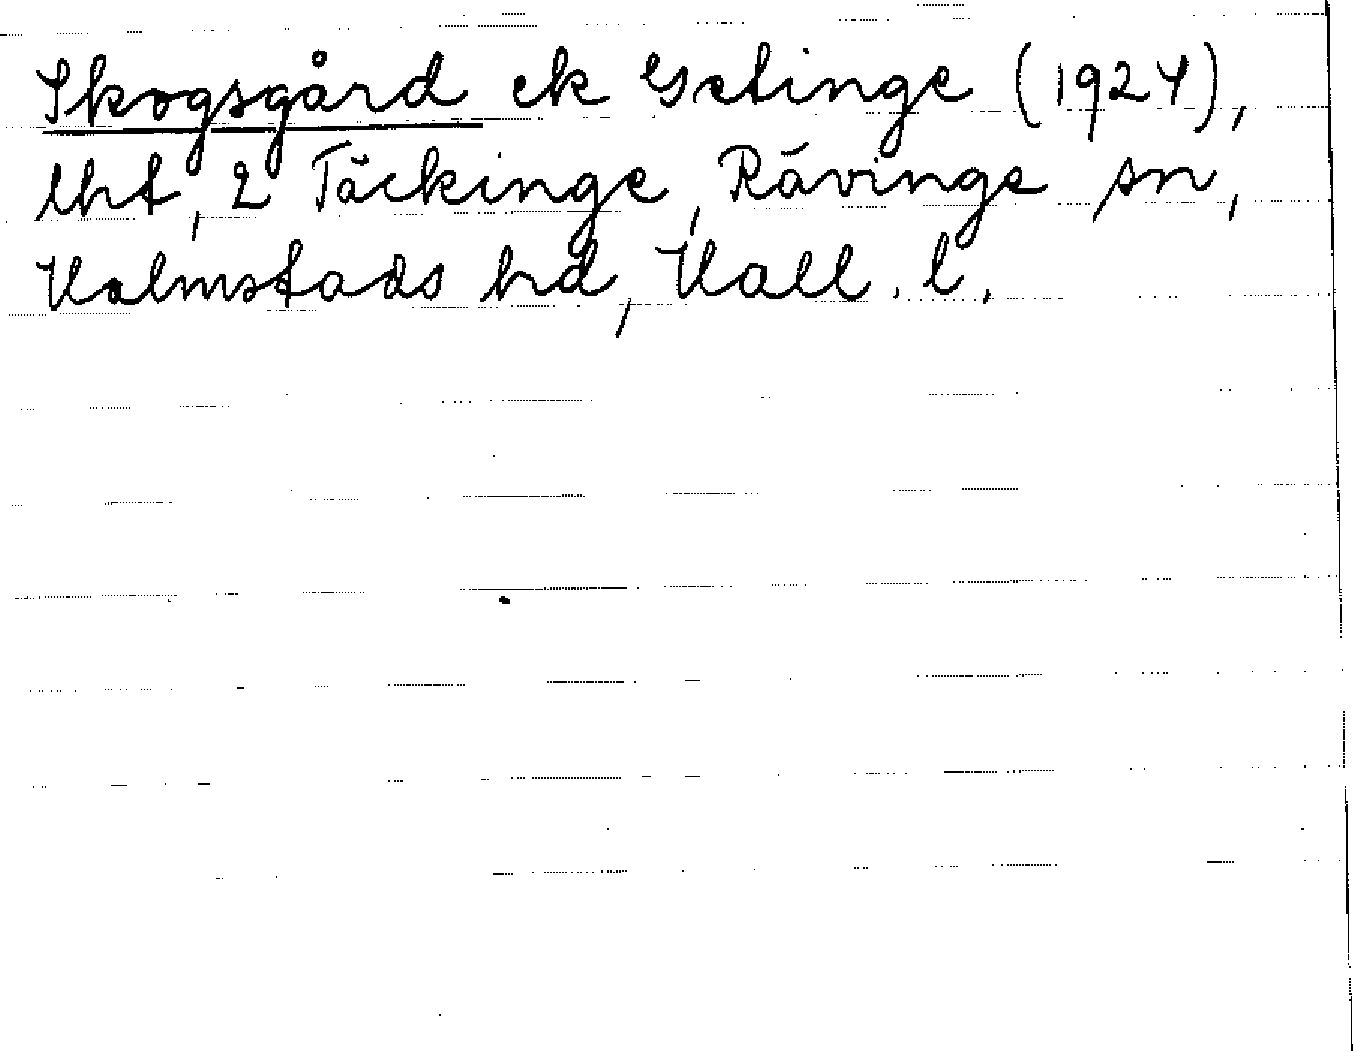 Skogsgård ek Getinge (1924),
lht, 2 Täckinge, Rävinge sn,
Halmstads hd, Hall. l.